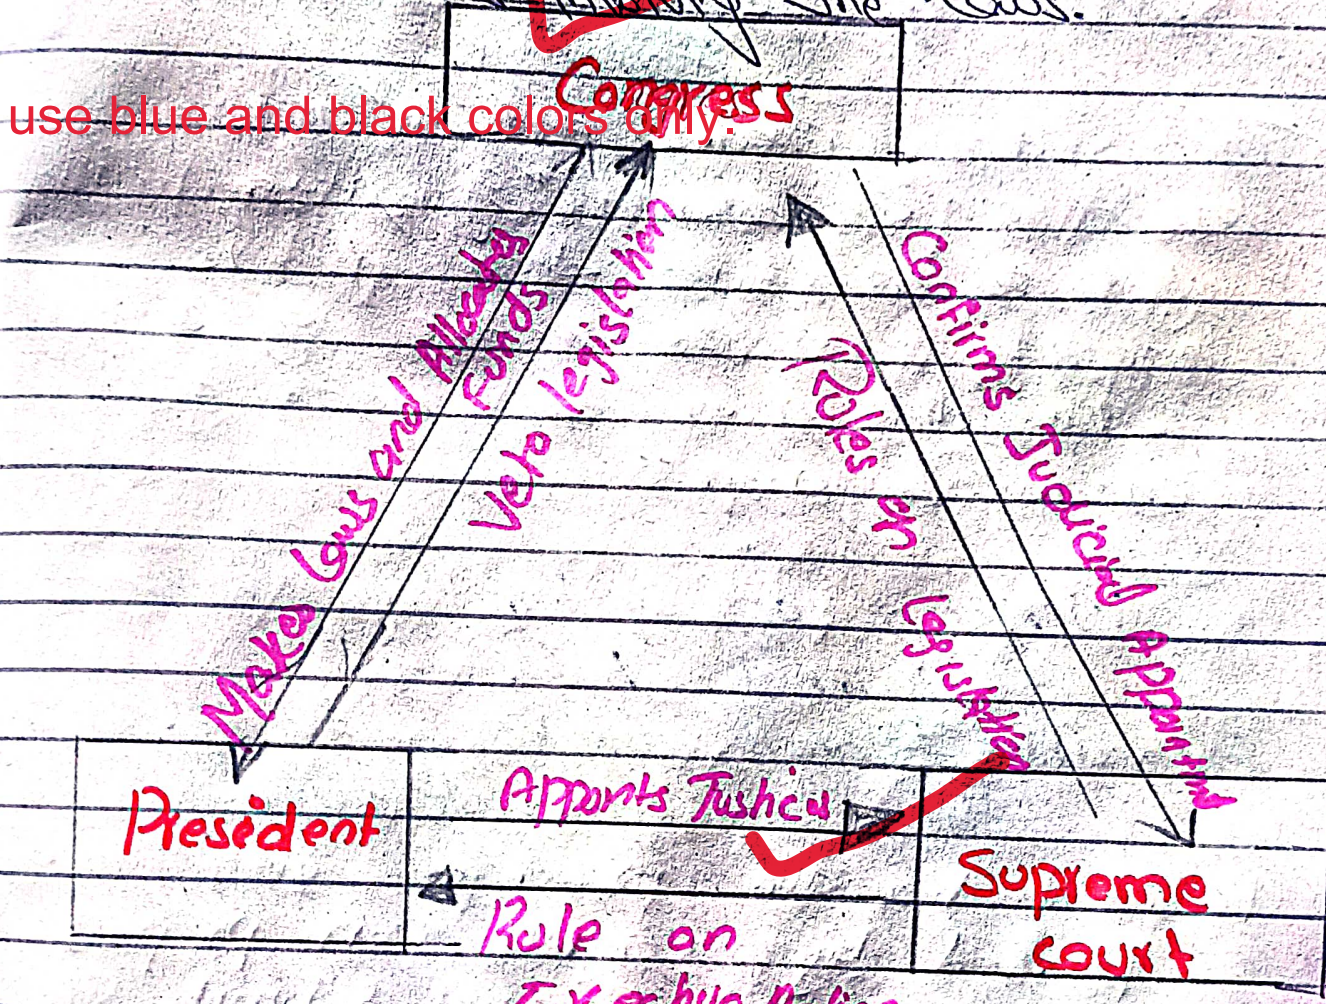 Congress
use blue and black colors only.
Makes Laws and Allocates
Funds
Veto legislation
Rules on Legislation
Confirms Judicial
President
Apponts Justices
Supreme
court
Rule on